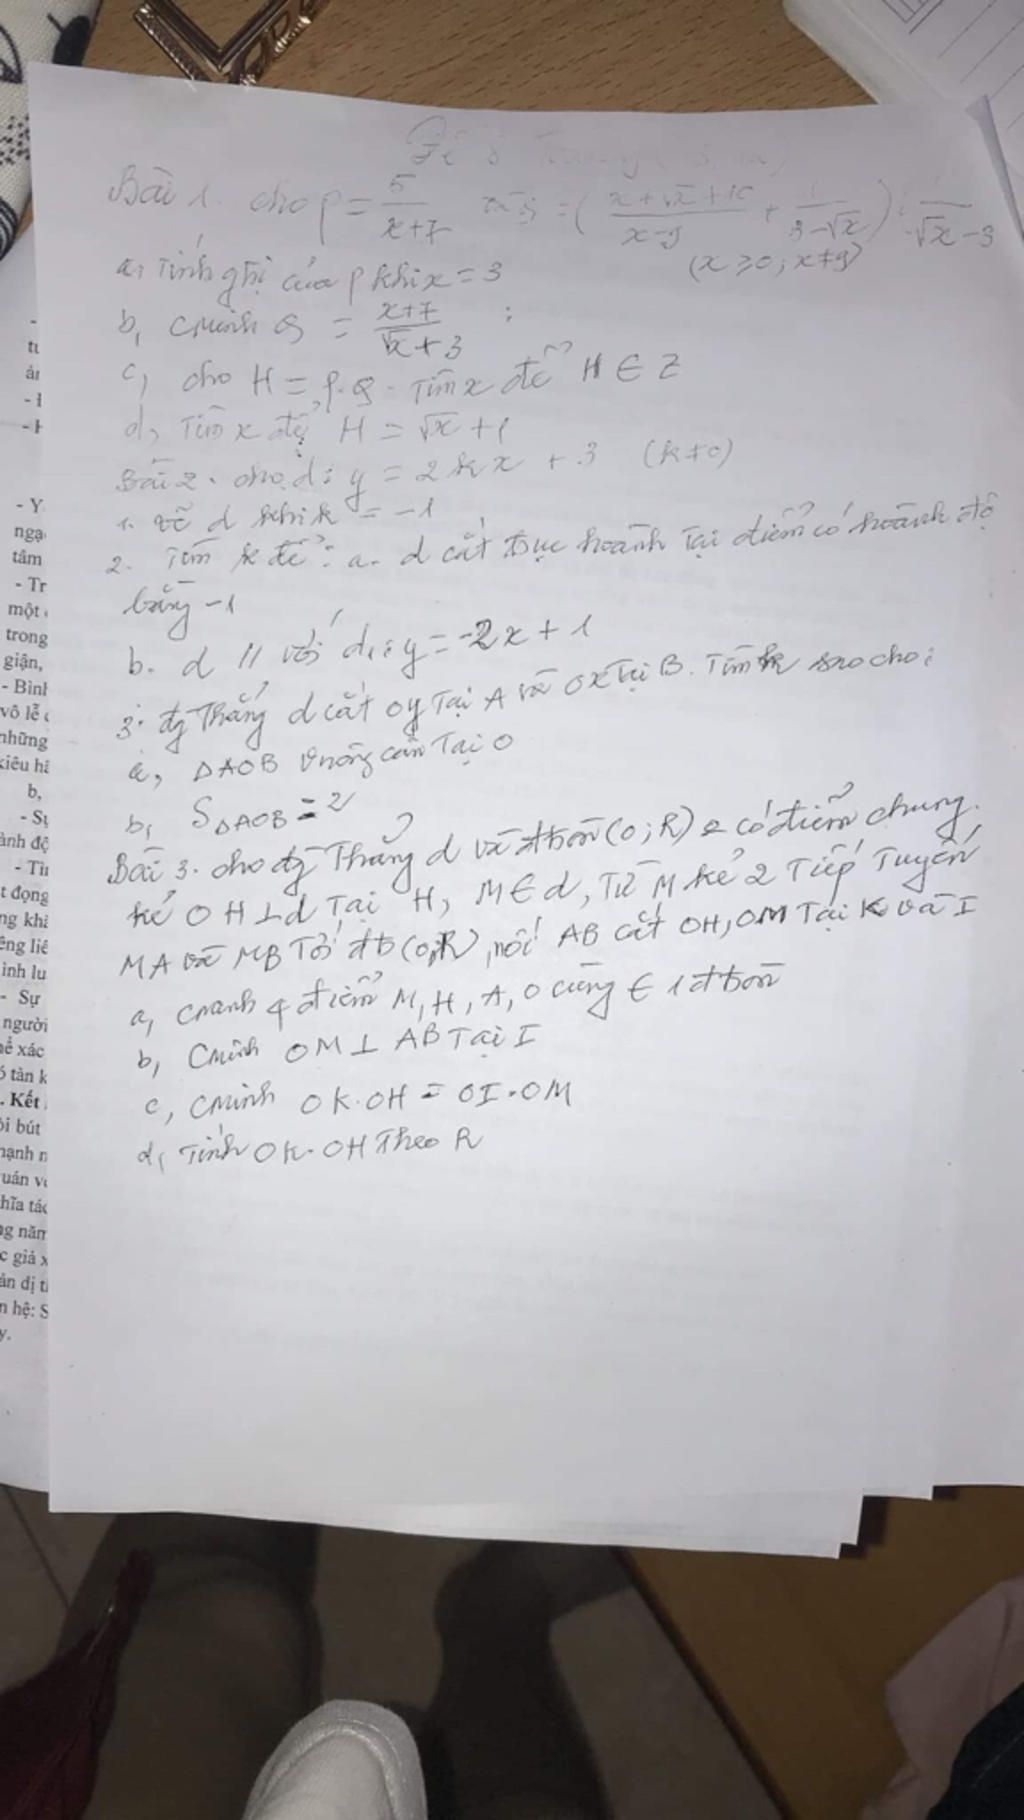 Bài 1. cho P = 5/(x+7) và Q = ((x+√x+10)/(x-9) + 1/(3-√x)) : 1/(√x-3)
(x ≥ 0; x ≠ 9)
a, Tính gtrị của P khi x = 3
b, Cminh Q = (x+7)/(√x+3) ;
c, cho H = P.Q. Tìm x để H ∈ Z
d, Tìm x để H = √x + 1
Bài 2. cho d: y = 2kx + 3 (k≠0)
1. vẽ d khi k = -1
2. Tìm k để: a. d cắt trục hoành tại điểm có hoành độ
bằng -1
b. d // với d₁: y = -2x + 1
3. đg thẳng d cắt oy tại A và ox tại B. Tìm k sao cho:
a, ΔAOB vuông cân tại O
b, SΔAOB = 2
Bài 3. cho đg thẳng d và đtròn (O;R) có điểm chung.
kẻ OH⊥d tại H, M∈d, Từ M kẻ 2 tiếp tuyến
MA và MB tới đtr (O;R), nối AB cắt OH, OM tại K và I
a, Cmanh 4 điểm M, H, A, O cùng ∈ 1 đtròn
b, Cminh OM⊥AB tại I
c, Cminh OK.OH = OI.OM
d, Tính OK.OH theo R
- Y
ngạ
tâm
- Tr
một
trong
giận,
- Bình
vô lễ
những
b,
ành độ
t đọng
ng khả
ình lu
- Sự
người
. Kết
ời bút
ng năm
c giả x
n hệ: S
y.